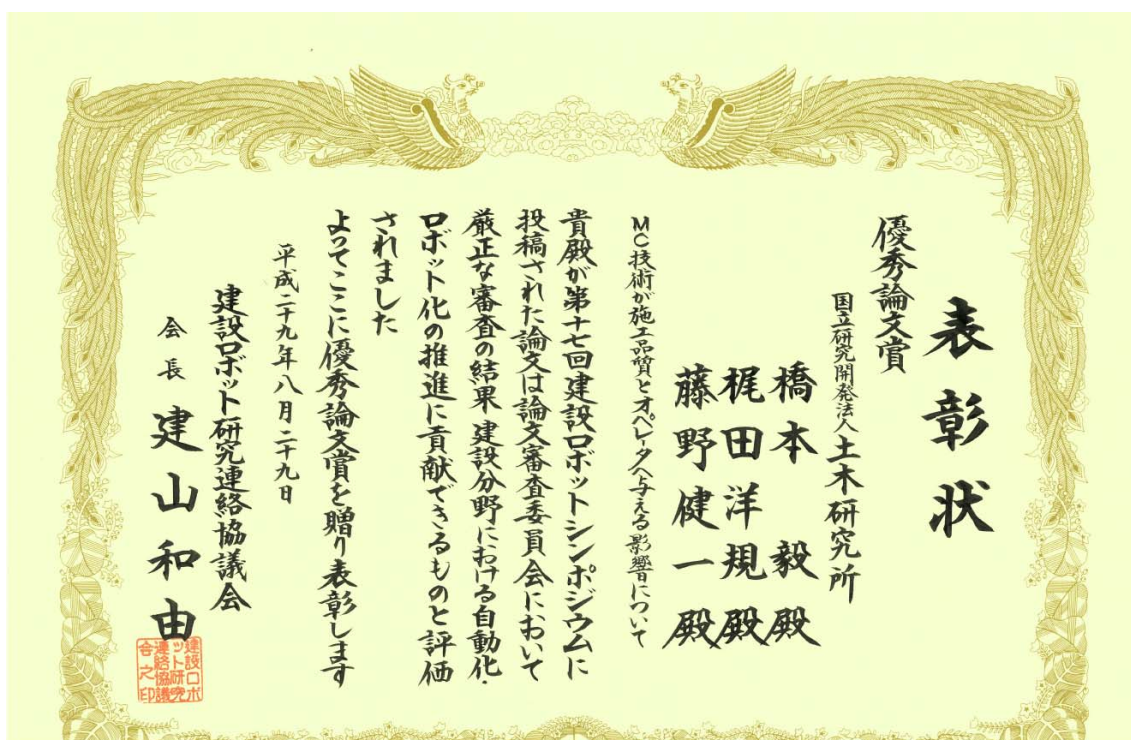 表彰状
優秀論文賞
国立研究開発法人土木研究所
橋本 毅 殿
梶田洋規殿
藤野健一殿
MC技術が施工品質とオペレータへ与える影響について
貴殿が第十七回建設ロボットシンポジウムに
投稿された論文は論文審査委員会において
厳正な審査の結果 建設分野における自動化・
ロボット化の推進に貢献できるものと評価
されました
よってここに優秀論文賞を贈り表彰します
平成二十九年八月二十九日
建設ロボット研究連絡協議会
会長 建山和由
建設ロボ
ット研究
連絡協議
会之印